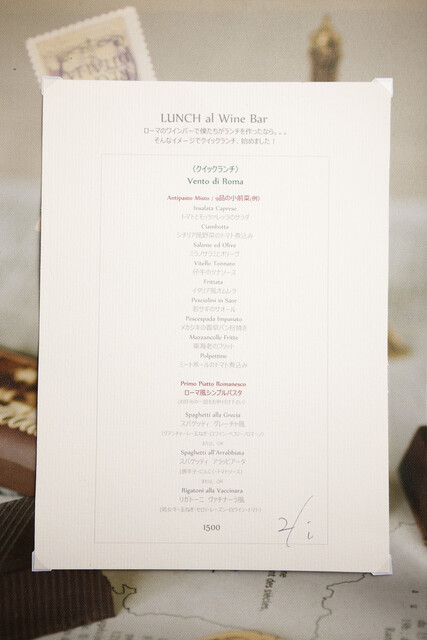 LUNCH al Wine Bar
ローマのワインバーで僕たちがランチを作ったなら。。。
そんなイメージでクイックランチ、始めました！
(クイックランチ)
Vento di Roma
Antipasto Misto : 9品の小前菜(例)
Insalata Caprese
トマトとモッツァレッラのサラダ
Ciambotta
シチリア風野菜のトマト煮込み
Salame ed Oliva
ミラノサラミとオリーヴ
Vitello Tonnato
仔牛のツナソース
Frittata
イタリア風オムレツ
Pesciolini in Saor
Pescespada Impanato
メカジキの香草パン粉焼き
Mazzancolle Fritto
Polpettine
ミートボールのトマト煮込み
Primo Piatto Romanesco
ローマ風シンプルパスタ
Spaghetti alla Grecia
スパゲッティ グレーチャ風
Spaghetti all'Arrabbiata
スパゲッティ アラッビアータ
Rigatoni alla Vaccinara
リガトーニ ヴァチナーラ風
1500